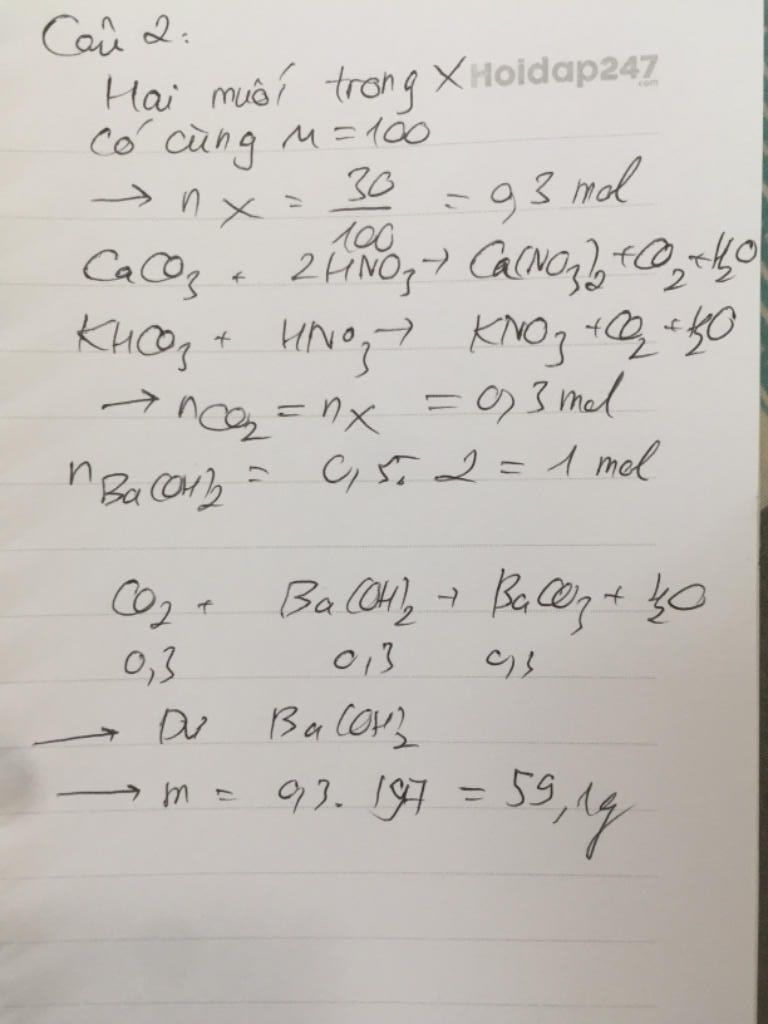 Câu 2:
Hoidap247
.com
Hai muối trong X
có cùng M = 100
→ n X = 30/100 = 0,3 mol
CaCO3 + 2HNO3 → Ca(NO3)2 + CO2 + H2O
KHCO3 + HNO3 → KNO3 + CO2 + H2O
→ nCO2 = nX = 0,3 mol
nBa(OH)2 = 0,5. 2 = 1 mol
CO2 + Ba(OH)2 → BaCO3 + H2O
0,3 0,3 0,3
→ Dư Ba(OH)2
→ m = 0,3. 197 = 59,1g